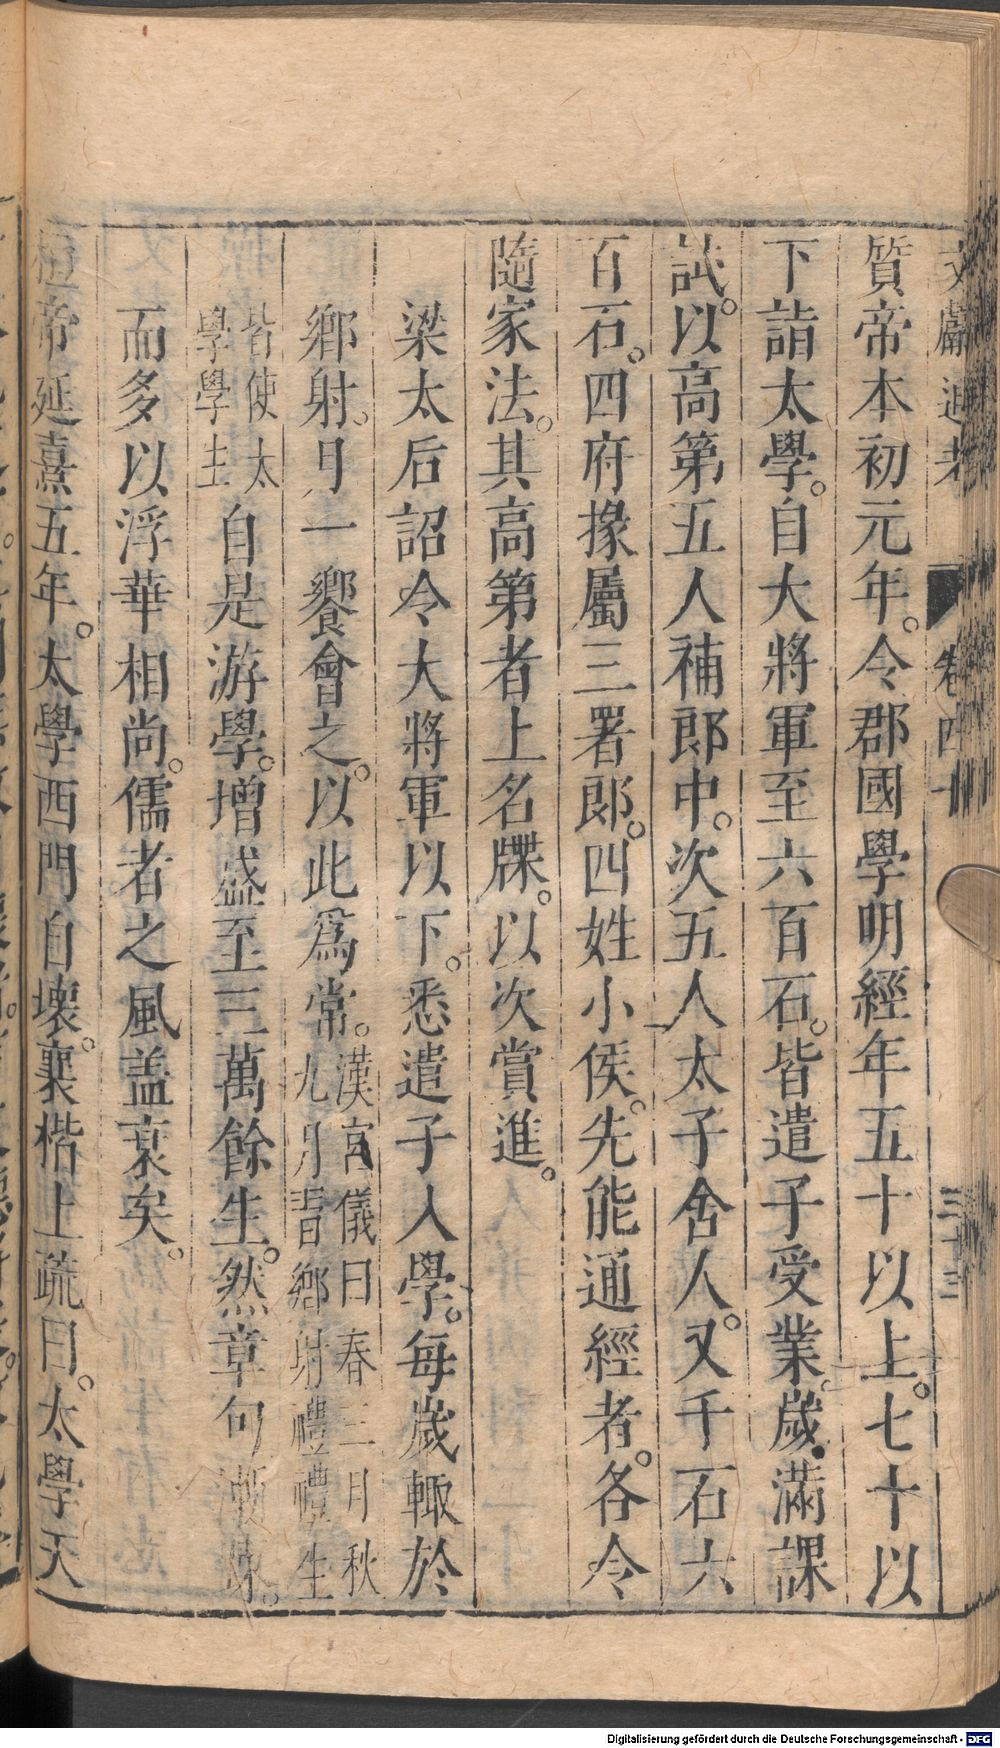 文獻通考 卷四十 三十三
質帝本初元年。令郡國學明經年五十以上。七十以
下詣太學。自大將軍至六百石。皆遣子受業。歲滿課
試。以高第五人補郎中。次五人太子舍人。又千石六
百石。四府掾屬三署郎。四姓小侯。先能通經者。各令
隨家法。其高第者上名牒。以次賞進。
梁太后詔令大將軍以下。悉遣子入學。每歲輒於
鄉射。月一饗會之。以此爲常。漢官儀曰春三月秋
九月習鄉射禮禮生
皆使太
學學生
自是游學。增盛至三萬餘生。然章句漸疎。
而多以浮華相尚。儒者之風盖衰矣。
桓帝延熹五年。太學西門自壞。襄楷上疏曰。太學天
Digitalisierung gefördert durch die Deutsche Forschungsgemeinschaft - DFG